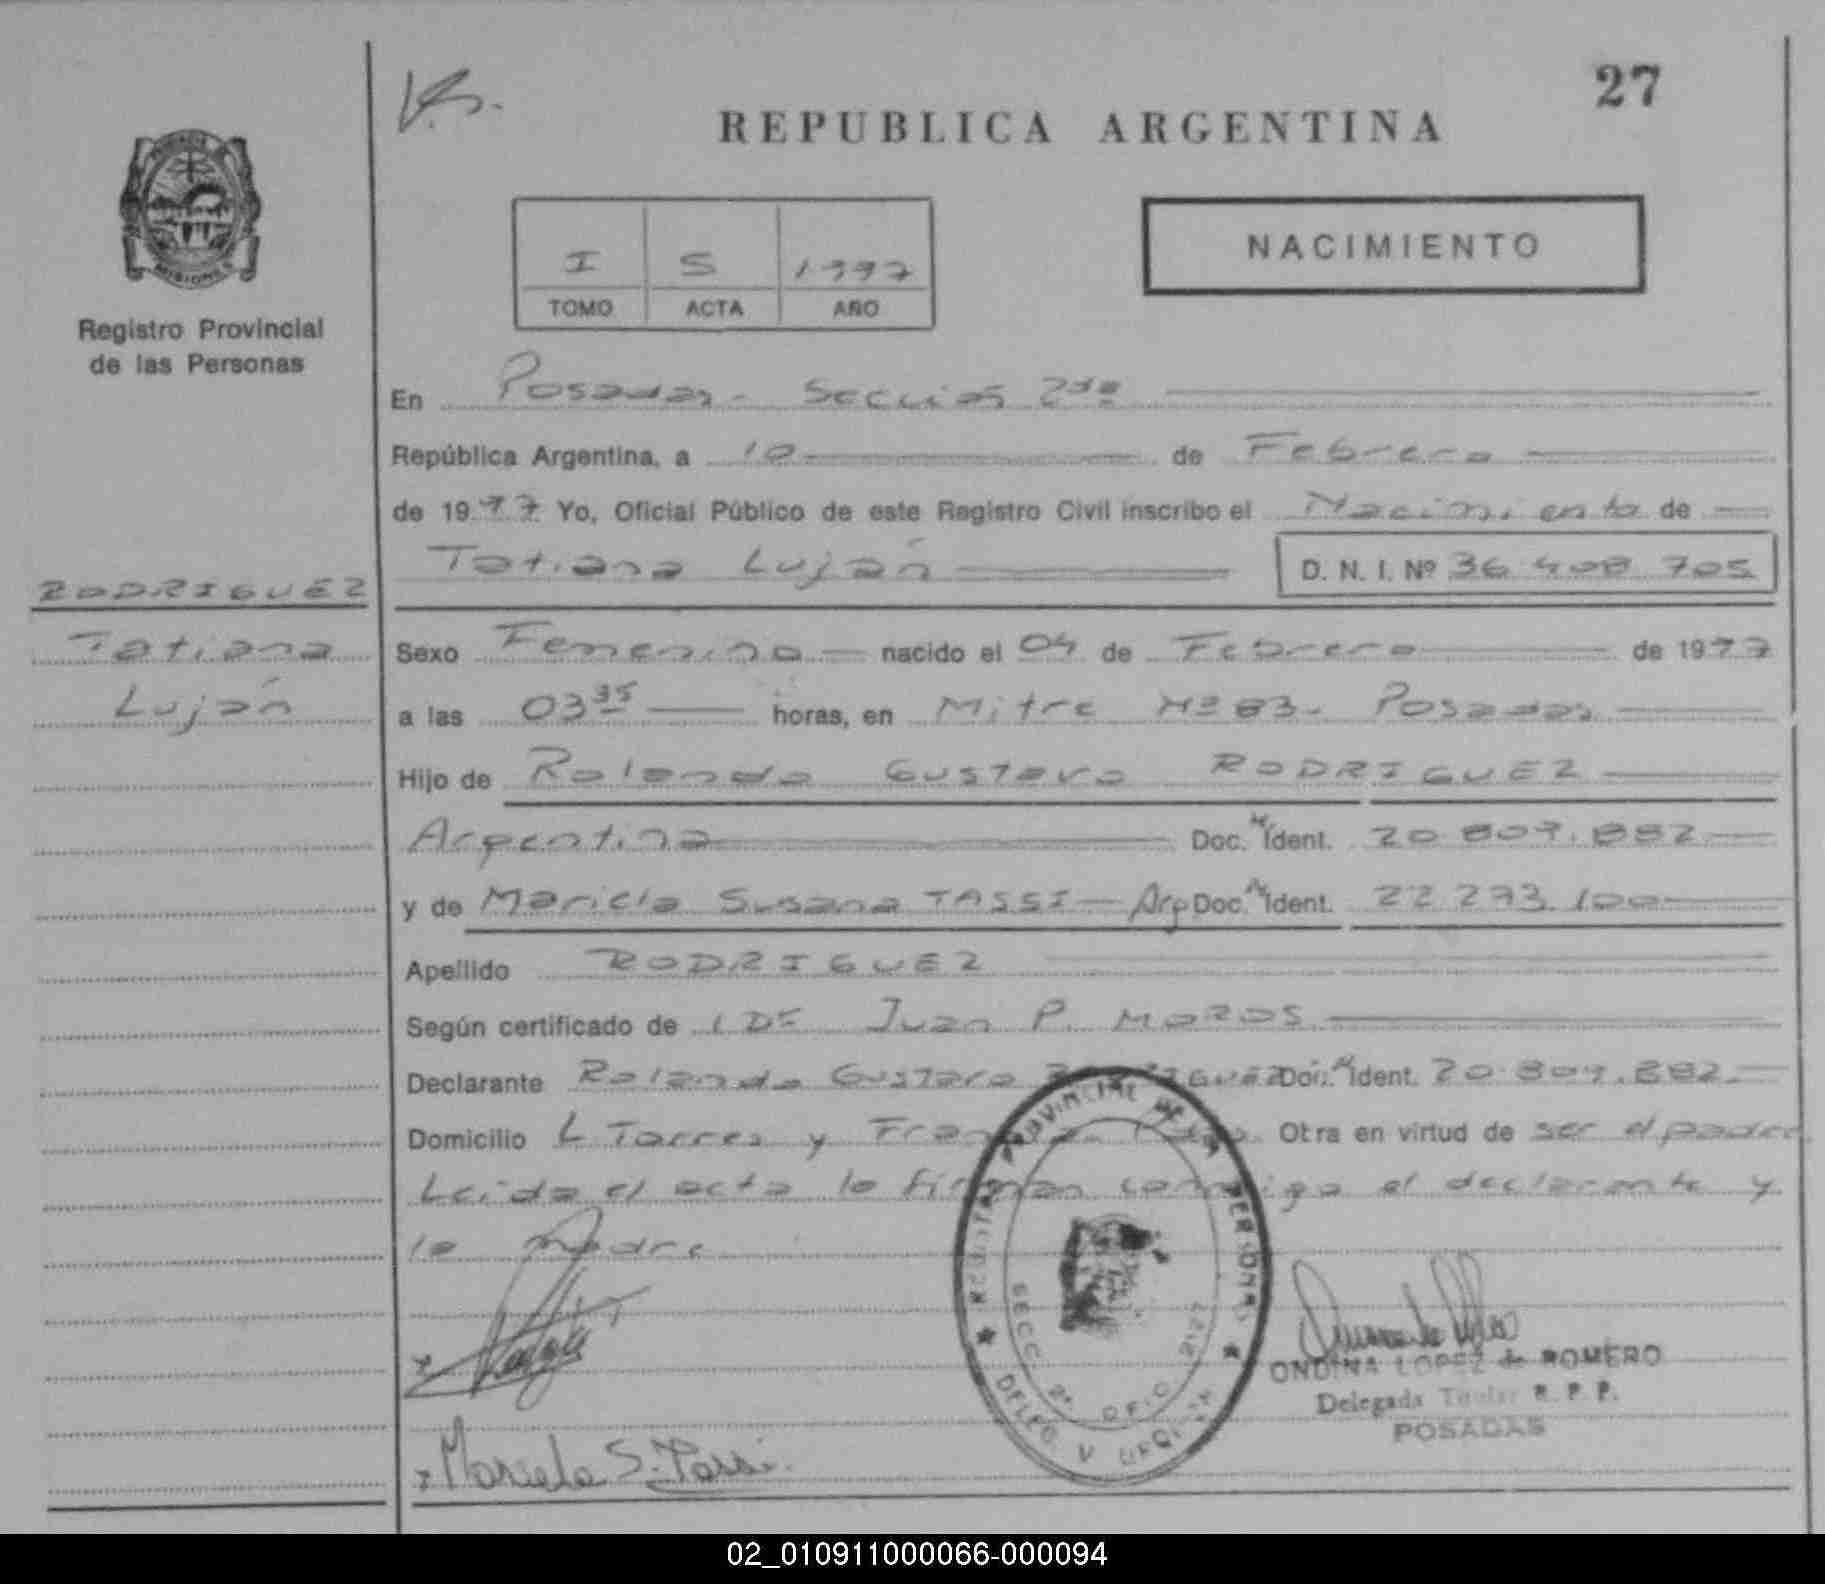 27
REPUBLICA ARGENTINA
MISIONES
Registro Provincial
de las Personas
NACIMIENTO
I S 1997
TOMO ACTA AÑO
En Posadas - Sección 2da
República Argentina, a 10 de Febrero
de 1997 Yo, Oficial Público de este Registro Civil inscribo el Nacimiento de
Tatiana Luján D. N. I. Nº 36 408 705
RODRIGUEZ
Tatiana
Luján
Sexo Femenino nacido el 04 de Febrero de 1997
a las 03 35 horas, en Mitre Nº 83 - Posadas
Hijo de Rolando Gustavo RODRIGUEZ
Argentina Doc. Ident. 20 809.882
y de Mariela Susana TASSI - Arg Doc. Ident. 22 273.100
Apellido RODRIGUEZ
Según certificado de Juan P. MOROS
Declarante Rolando Gustavo RODRIGUEZ Doc. Ident. 20.809.882
Domicilio L Torres y Otra en virtud de ser el padre
Leida el acta la firman conmigo el declarante y
la Madre
REGISTRO PROVINCIAL DE LAS PERSONAS
SECC. 2ª OFIC. 2127
DELEG. V URQUIZA
ONDINA LOPEZ de ROMERO
Delegada Titular R. P. P.
POSADAS
Mariela S. Tassi.
02_010911000066-000094